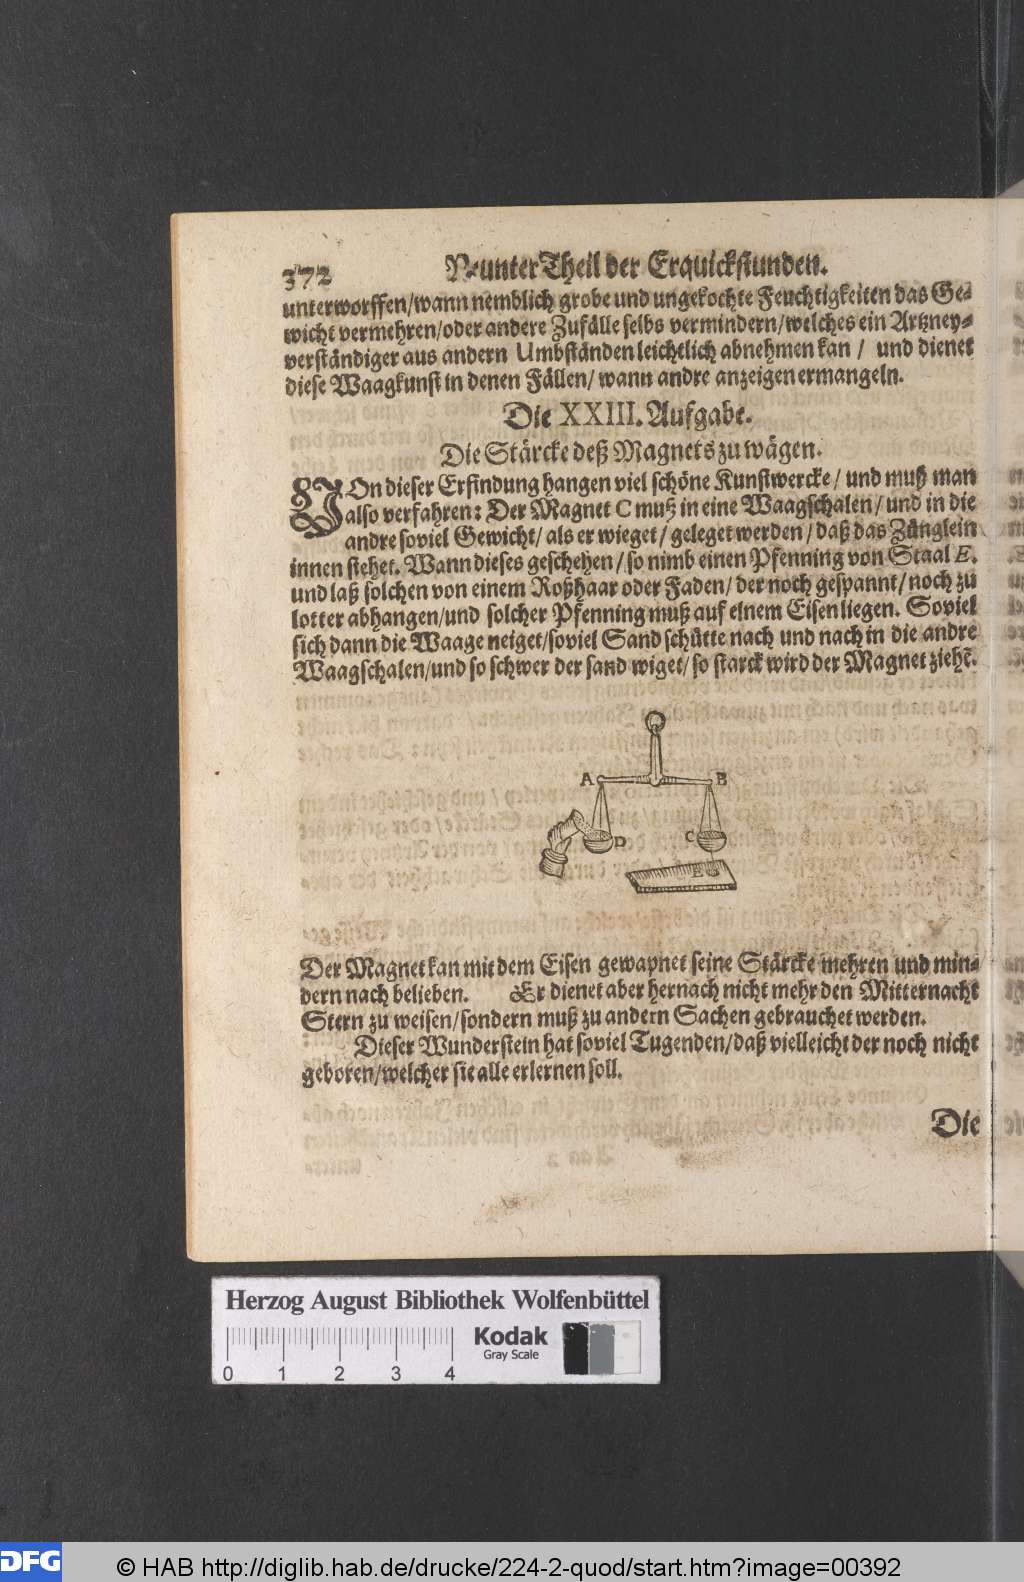 372 Neunter Theil der Erquickstunden.
unterworffen/wann nemblich grobe und ungekochte Feuchtigkeiten das Ge-
wicht vermehren/oder andere Zufälle selbs vermindern/welches ein Artzney-
verständiger aus andern Umbständen leichtlich abnehmen kan / und dienet
diese Waagkunst in denen Fällen/ wann andre anzeigen ermangeln.
Die XXIII. Aufgabe.
Die Stärcke deß Magnets zu wägen.
VOn dieser Erfindung hangen viel schöne Kunstwercke / und muß man
also verfahren: Der Magnet C muß in eine Waagschalen / und in die
andre soviel Gewicht/ als er wieget / geleget werden / daß das Zünglein
innen stehet. Wann dieses geschehen / so nimb einen Pfenning von Staal E.
und laß solchen von einem Roßhaar oder Faden/ der noch gespannt/ noch zu
lotter abhangen/und solcher Pfenning muß auf einem Eisen liegen. Soviel
sich dann die Waage neiget/soviel Sand schütte nach und nach in die andre
Waagschalen/und so schwer der sand wiget/ so starck wird der Magnet ziehẽ.
A B
D C
E
Der Magnet kan mit dem Eisen gewapnet seine Stärcke mehren und min-
dern nach belieben. Er dienet aber hernach nicht mehr den Mitternacht
Stern zu weisen/sondern muß zu andern Sachen gebrauchet werden.
Dieser Wunderstein hat soviel Tugenden/daß vielleicht der noch nicht
geboren/welcher sie alle erlernen soll.
Die
Herzog August Bibliothek Wolfenbüttel
Kodak
Gray Scale
0 1 2 3 4
DFG © HAB http://diglib.hab.de/drucke/224-2-quod/start.htm?image=00392